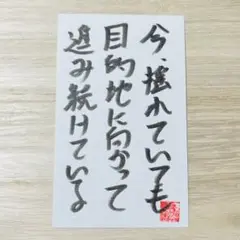 今、揺れていても
目的地に向かって
進み続けている